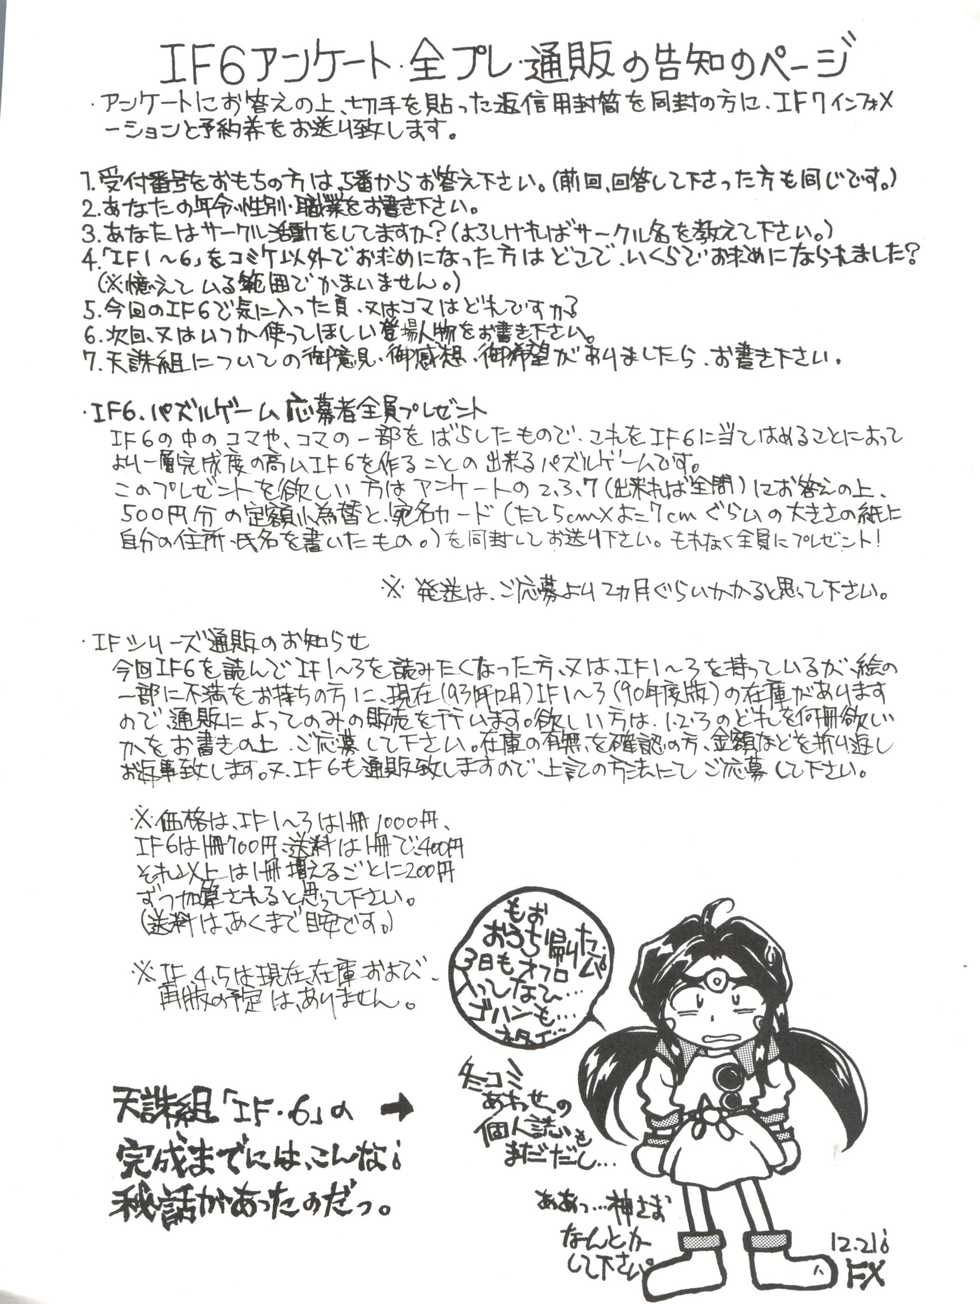 IF6アンケート・全プレ・通販の告知のページ
・アンケートにお答えの上、切手を貼った返信用封筒を同封の方に、IF7インフォメ
ーションと予約券をお送り致します。
1.受付番号をおもちの方は、5番からお答え下さい。(前回、回答して下さった方も同じです。)
2.あなたの年令・性別・職業をお書き下さい。
3.あなたはサークル活動をしてますか?(よろしければサークル名を教えて下さい。)
4.「IF1〜6」をコミケ以外でお求めになった方はどこで、いくらでお求めになられましたか?
(※憶えている範囲でかまいません。)
5.今回のIF6で気に入った頁、又はコマはどれですか?
6.次回、又はいつか使ってほしい登場人物をお書き下さい。
7.天誅組についての御意見・御感想・御希望がありましたら、お書き下さい。
・IF6.パズルゲーム応募者全員プレゼント
IF6の中のコマや、コマの一部をばらしたもので、これをIF6に当てはめることによって
より一層完成度の高いIF6を作ることの出来るパズルゲームです。
このプレゼントを欲しい方はアンケートの2、3、7(出来れば全問)にお答えの上、
500円分の定額小為替と、宛名カード(たて5cm×よこ7cmぐらいの大きさの紙に
自分の住所・氏名を書いたもの。)を同封してお送り下さい。もれなく全員にプレゼント!
※発送は、ご応募より2ヵ月ぐらいかかると思って下さい。
・IFシリーズ通販のお知らせ
今回IF6を読んでIF1〜3を読みたくなった方、又は、IF1〜3を持っているが、絵の
一部に不満をお持ちの方に、現在(93年12月)IF1〜3(90年度版)の在庫があります
ので通販によってのみの販売を行います。欲しい方は、1・2・3のどれを何冊欲しい
かをお書きの上、ご応募して下さい。在庫の有無を確認の方、金額などを折り返し
お返事致します。又、IF6も通販致しますので、上記の方法にてご応募して下さい。
※価格は、IF1〜3は1冊1000円、
IF6は1冊700円、送料は1冊で400円
それ以上は1冊増えるごとに200円
ずつ加算されると思って下さい。
(送料は、あくまで目安です。)
※IF、4、5は現在、在庫および、
再版の予定は、ありません。
もお
おうち帰りたい
3日もオフロ
入ってないひ…
ゴハンも…
冬コミ
あわせの
個人誌も
まだだし…
ああっ…神さま
なんとか
して下さい。
天誅組「IF・6」の →
完成までには、こんな
秘話があったのだっ。
12.21
FX